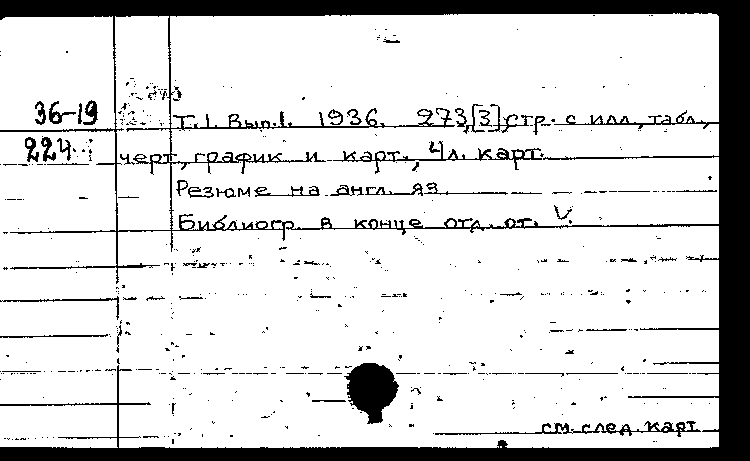 36-19 Т. 1. Вып.1. 1936. 273,[3] стр. с илл., табл.,
224 черт., график и карт., 4 л. карт.
Резюме на англ. яз.
Библиогр. в конце отд. от.
см. след. карт